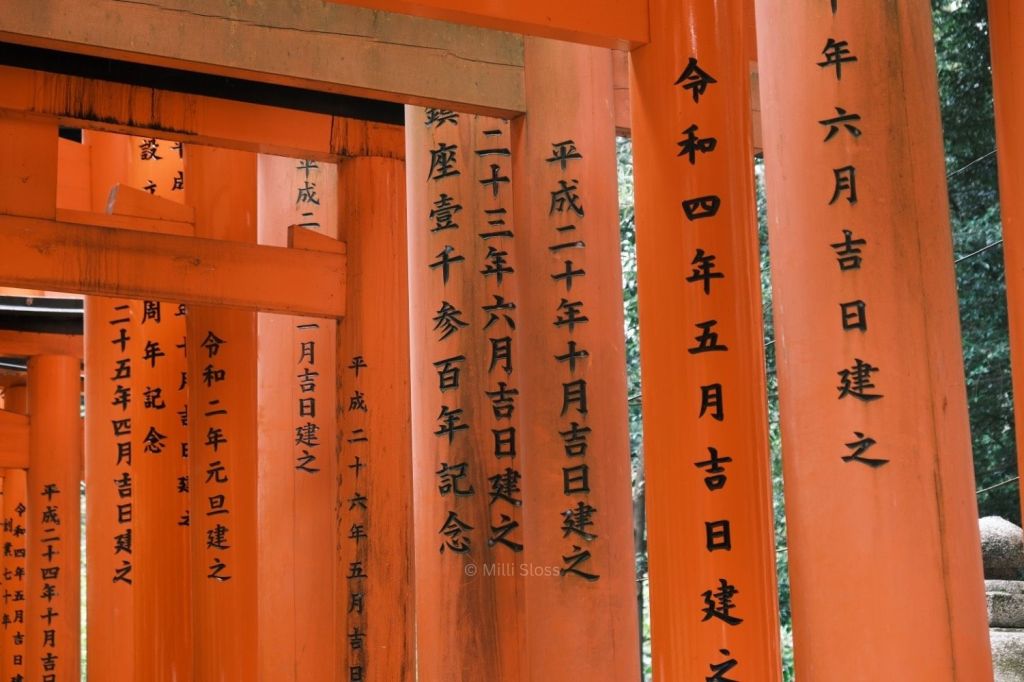 年六月吉日建之
令和四年五月吉日建之
平成二十年十月吉日建之
二十三年六月吉日建之
鎮座壹千参百年記念
平成二十六年五月吉日
平成二
一月吉日建之
令和二年元旦建之
平成
年十月吉日建之
設立
周年記念
二十五年四月吉日建之
平成二十四年十月吉
令和四年五月吉日建
創業七十年
© Milli Sloss